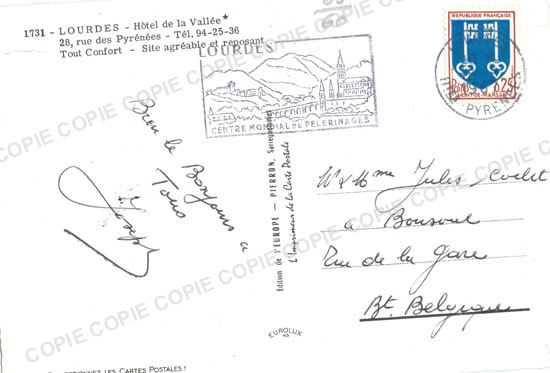 1731 - LOURDES - Hôtel de la Vallée*
28, rue des Pyrénées - Tél. 94-25-36
Tout Confort - Site agréable et reposant
LOURDES
CENTRE MONDIAL DE PÈLERINAGES
RÉPUBLIQUE FRANÇAISE
0,25
MONT-DE-MARSAN
PYRENEES
Bien le Bonjour à
Tous
Joseph
Edition de l'EUROPE — PIERRON, Sarreguemines
L'Imprimeur de la Carte Postale
EUROLUX
Mr & Mme Jules
à Bousval
Rue de la Gare
Bt. Belgique
LES CARTES POSTALES !
COPIE COPIE COPIE COPIE COPIE
COPIE COPIE COPIE COPIE COPIE COPIE
COPIE COPIE COPIE COPIE COPIE COPIE